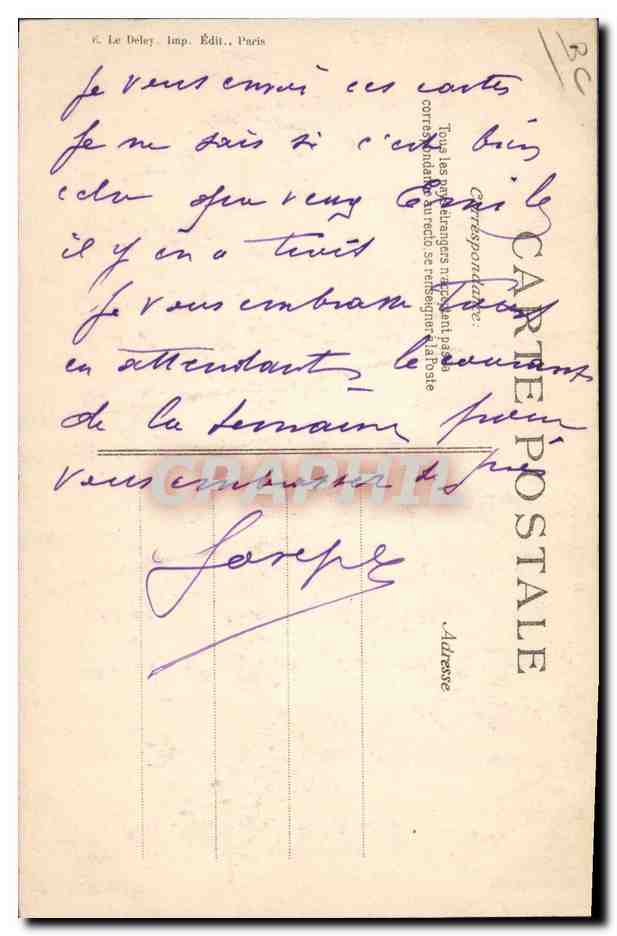 E. Le Deley. Imp. Édit., Paris
BC
Je vous envoi ces cartes
Je ne sais si c'est bien
cela que veux Emile
il y en a trois
Je vous embrasse Tous
en attendant le courant
de la semaine pour
vous embrasser de près
Joseph
CARTE POSTALE
Correspondance:
Tous les pays étrangers n'acceptent pas la
correspondance au recto, se renseigner à la Poste
Adresse
CPAPHIL